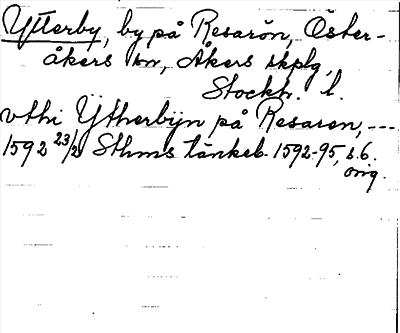 Ytterby, by på Resarön, Öster-
åkers sn, Åkers skplg,
Stockh. l.
vthi Ytherbÿn på Resaron, ---
1592 23/2 Sthms tänkeb. 1592-95, s. 6.
orig.